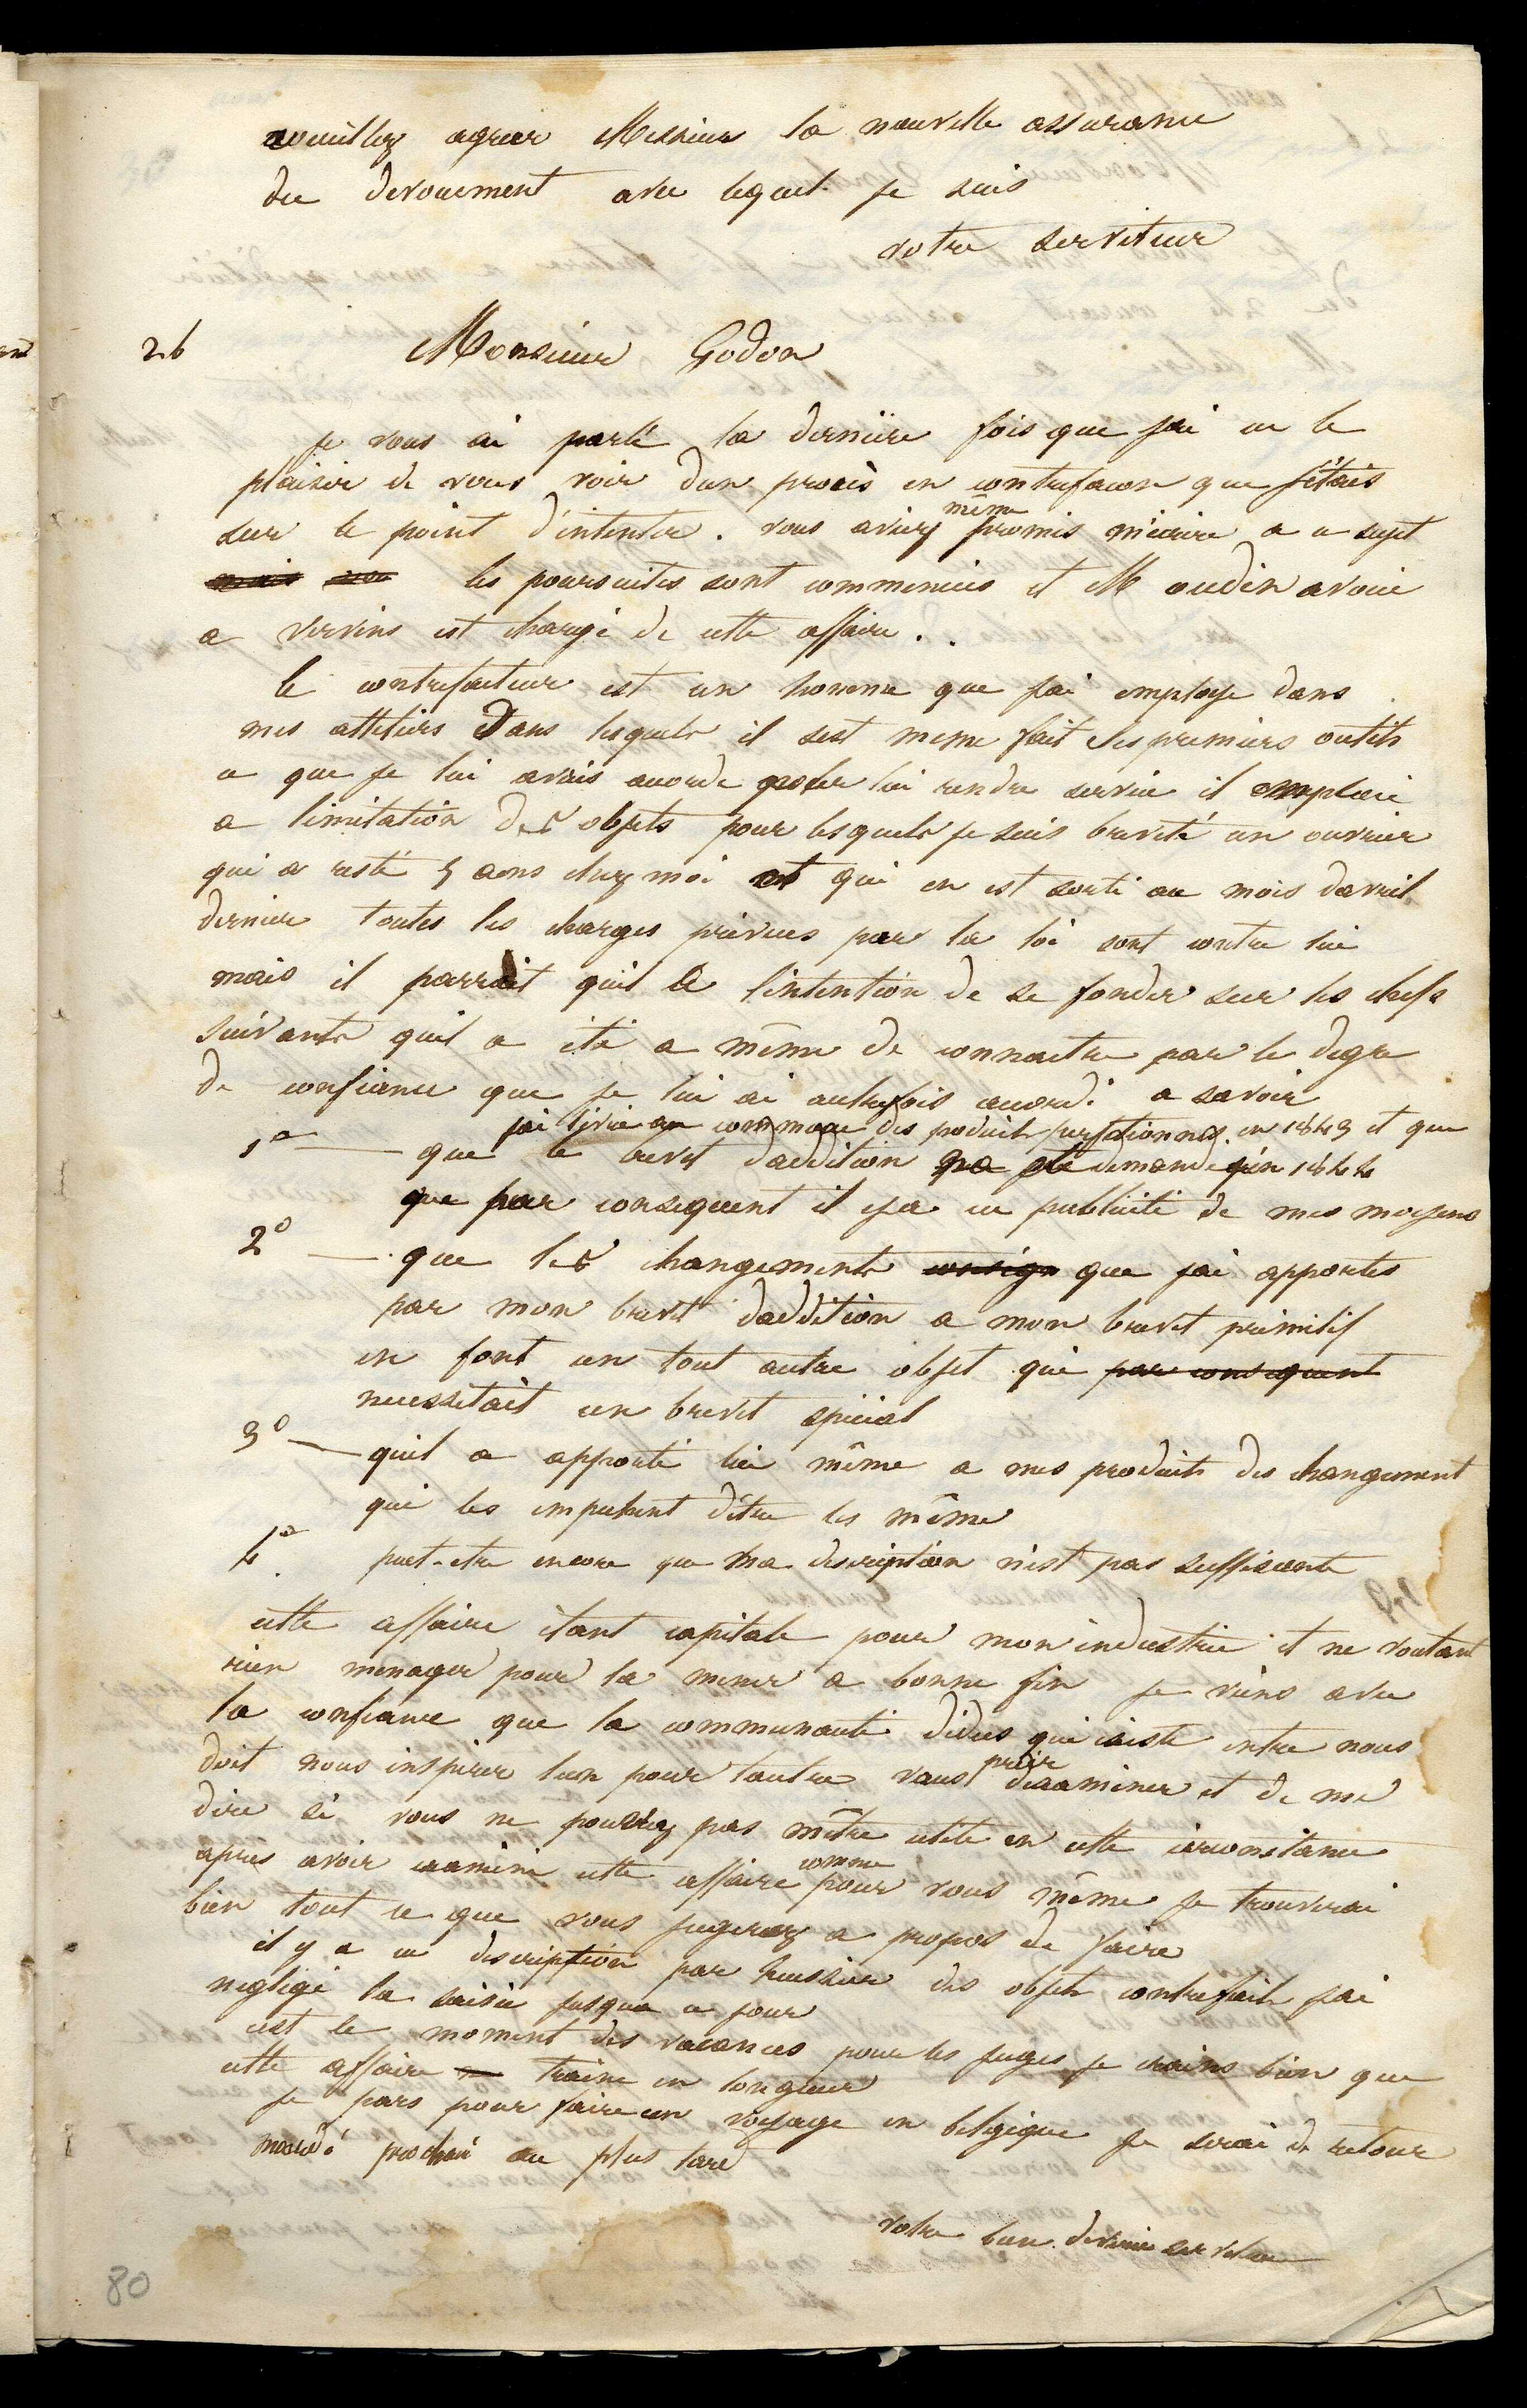 veuillez agreer Messieurs la nouvelle assurance
du devouement avec lequel je suis
votre serviteur
26 Monsieur Godon
je vous ai parlé la dernière fois que jai eu le
plaisir de vous voir dun procès en contrefacon que j'étais
sur le point d'intenter. vous aviez même promis m'ecrire a ce sujet
mais les poursuites sont commencées et M oudin avoué
a vervins est chargé de cette affaire.
le contrefacteur est un homme que jai employe dans
mes atteliers Dans lesquels il sest meme fait ses premiers outils
ce que je lui avais accorde pour lui rendre service il emploie
a limitation des objets pour lesquels je suis breveté un ouvrier
qui a resté 5 ans chez moi et qui en est sorti au mois davril
dernier toutes les charges prévues par la loi sont contre lui
mais il parrait quil a lintention de se fonder sur les chefs
suivants quil a été a même de connaitre par le degre
de confiance que je lui ai autrefois accordé a savoir
1º que jai livré au commerce des produits perfectionnés en 1843 et que
le brevet daddition na été demandé qu'en 1844
que par consequent il y a eu publicité de mes moyens
2º que les changements consign que jai apportes
par mon brevet daddition a mon brevet primitif
en font un tout autre objet qui par consequent
necessitait un brevet spécial
3º quil a apporté lui même a mes produits des changement
qui les empechent d'être les même
4º peut-etre encore que ma description n'est pas suffisante
cette affaire étant capitale pour mon industrie et ne voulant
rien menager pour la mener a bonne fin je viens avec
la confiance que la communauté didées qui existe entre nous
doit nous inspirer lun pour lautre vous prier dexaminer et de me
dire si vous ne pourriez pas mêtre utile en cette circonstance
apres avoir examiné cette affaire comme pour vous même je trouverai
bien tout ce que vous jugerez a propos de faire
il y a eu description par huissier des objets contrefaits jai
negligé la saisie jusqua ce jour
cest le moment des vacances pour les juges je crains bien que
cette affaire traine en longueur
je pars pour faire un voyage en belgique je serai de retour
mardi prochain au plus tard
votre bien devoué serviteur
80